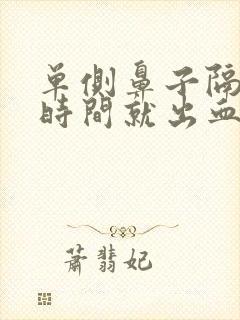 單側鼻子隔
時間就出血
蕭翡妃